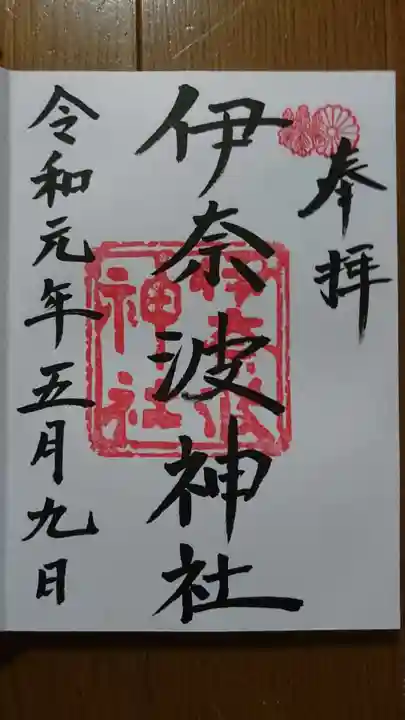 奉拝
伊奈波神社
伊奈波
神社
令和元年五月九日